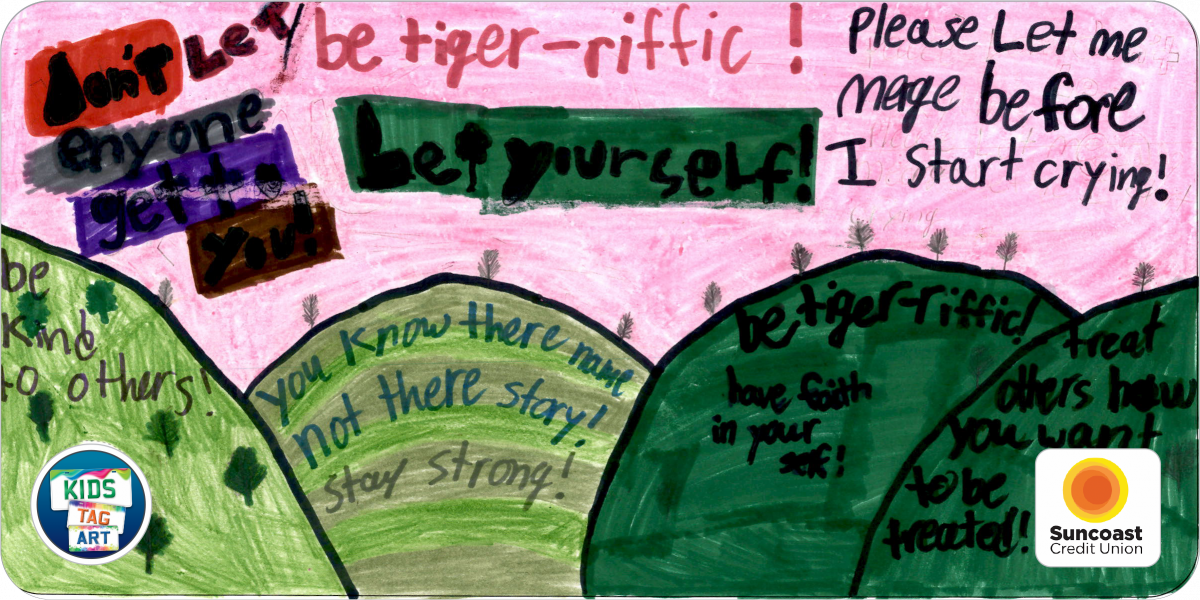 Don't Let
enyone
get to
you!
be tiger-riffic!
be yourself!
Please Let me
mage before
I start crying!
be
kind
to others!
you know there name
not there story!
stay strong!
be tiger-riffic!
have faith
in your
self!
treat
others how
you want
to be
treated!
KIDS
TAG
ART
Suncoast
Credit Union